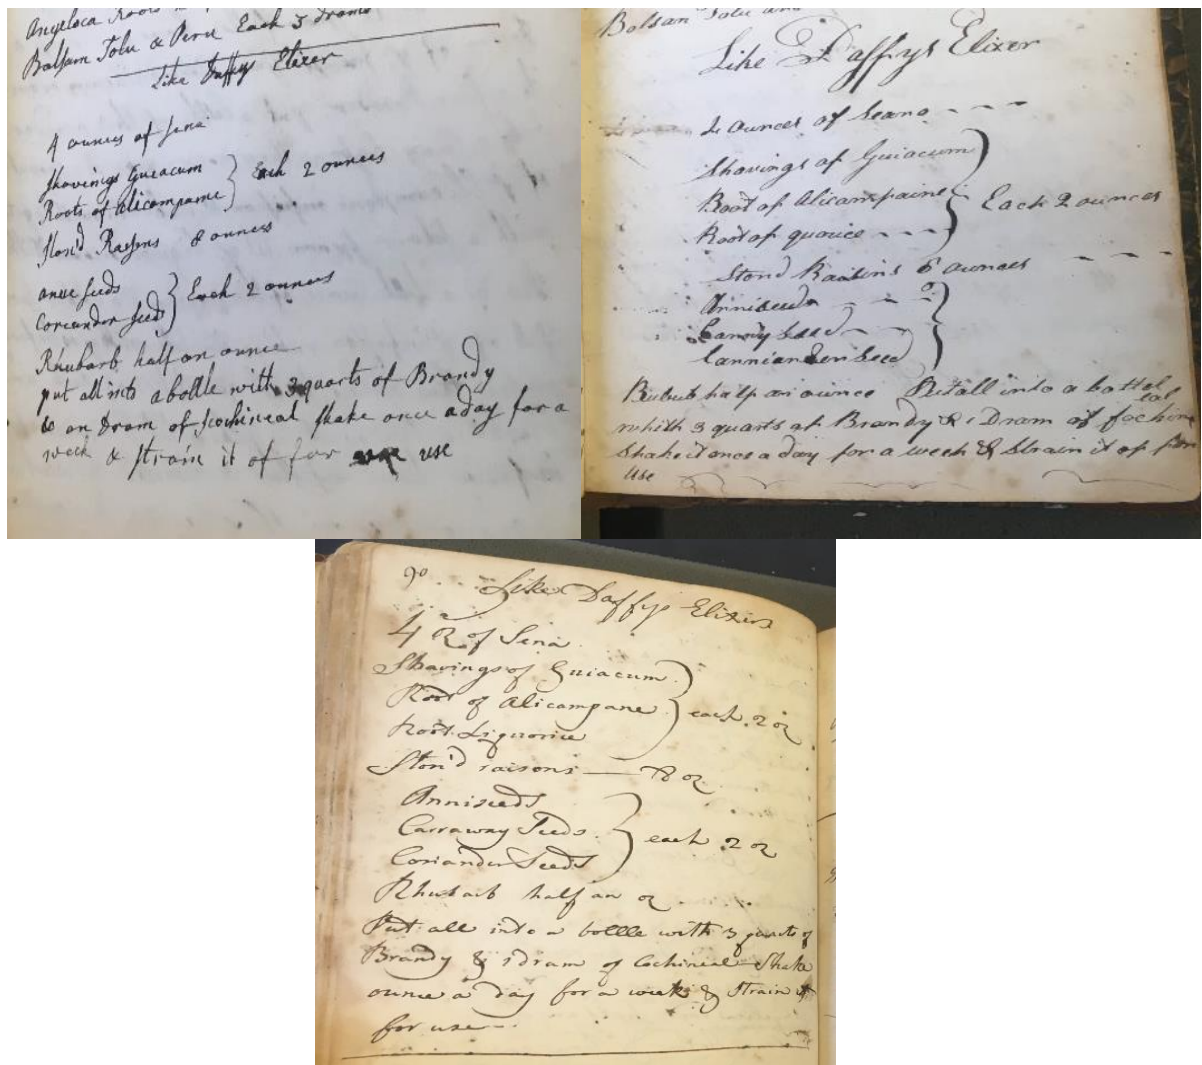 Angeloca Roots
Balsam Tolu & Peru Each 3 drams
Like Daffys Elixer
4 ounces of sena
shavings Gueacum
Roots of Alicampane
Each 2 ounces
ston'd Rasins 8 ounces
anice seeds
Coriander seeds
Each 2 ounces
Rhubarb half an ounce
put all into a bottle with 3 quarts of Brandy
& on Dram of scochineal shake once a day for a
week & strain it of for use
Balsan Tolu and
Like Daffys Elixer
4 ounces of seano
Shavings of Guiacum
Root of Alicampaine
Root of quorice
Each 2 ounces
Stond Raisins 6 ounces
Anniseeds
Carrny seed
Cannianderseed
Rubub half an ounce Put all into a bottel
whith 3 quarts at Brandy & 1 Dram of
Shake it once a day for a week & Strain it of for
use
90 Like Daffys Elixirs
4 oz of Sena
Shavings of Guiacum
Root of Alicampane
Root Liquorice
each 2 oz
Ston'd raisons 8 oz
Anniseeds
Carraway Seeds
Coriander Seeds
each 2 oz
Rhubarb half an oz
Put all into a bottle with 3 quarts of
Brandy & 1 dram of Cochineal Shake
ounce a day for a week & Strain it
for use